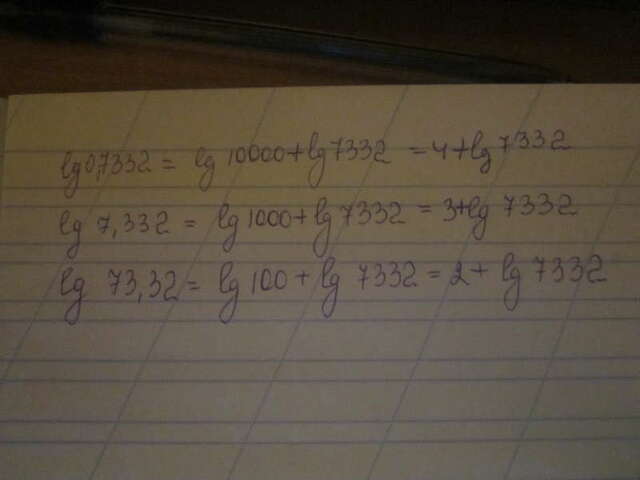 lg 0,7332 = lg 10000 + lg 7332 = 4 + lg 7332
lg 7,332 = lg 1000 + lg 7332 = 3 + lg 7332
lg 73,32 = lg 100 + lg 7332 = 2 + lg 7332